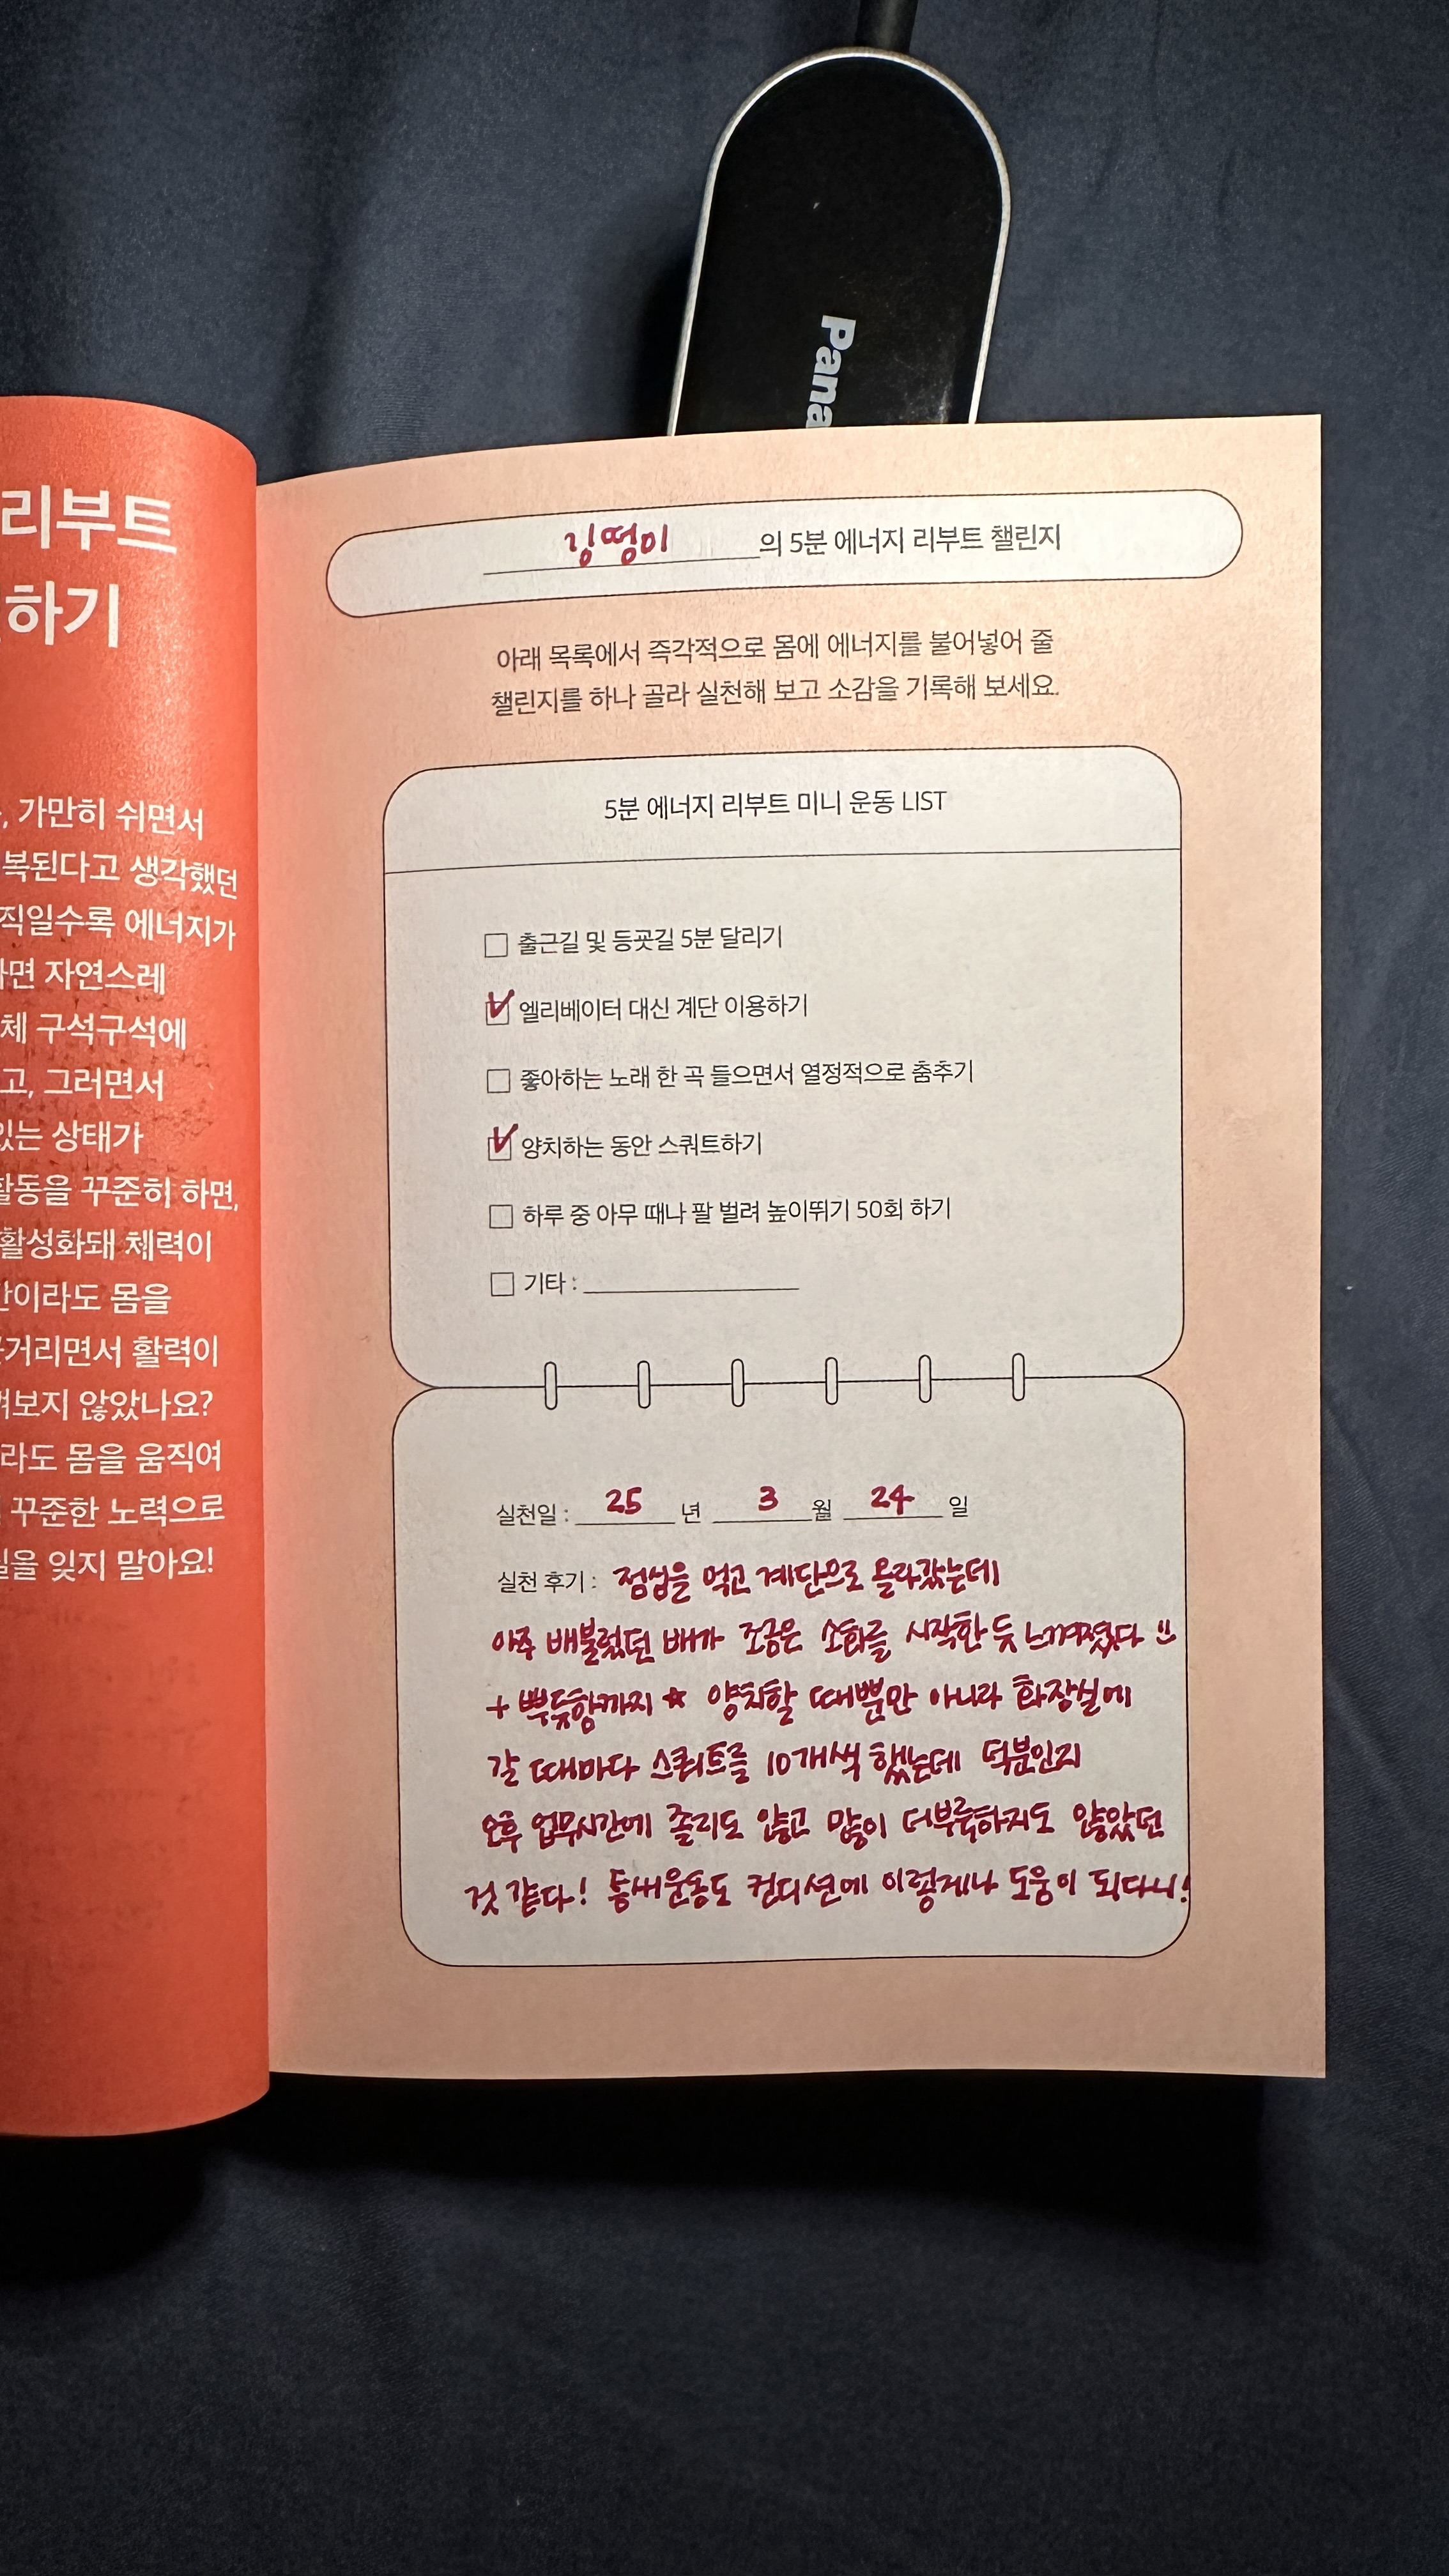 Pana
리부트
하기
, 가만히 쉬면서
복된다고 생각했던
직일수록 에너지가
면 자연스레
체 구석구석에
고, 그러면서
있는 상태가
활동을 꾸준히 하면,
활성화돼 체력이
이라도 몸을
거리면서 활력이
껴보지 않았나요?
라도 몸을 움직여
꾸준한 노력으로
을 잊지 말아요!
깅떵이의 5분 에너지 리부트 챌린지
아래 목록에서 즉각적으로 몸에 에너지를 불어넣어 줄
챌린지를 하나 골라 실천해 보고 소감을 기록해 보세요.
5분 에너지 리부트 미니 운동 LIST
출근길 및 등굣길 5분 달리기
엘리베이터 대신 계단 이용하기
좋아하는 노래 한 곡 들으면서 열정적으로 춤추기
양치하는 동안 스쿼트하기
하루 중 아무 때나 팔 벌려 높이뛰기 50회 하기
기타 :
실천일 : 25 년 3 월 24 일
실천 후기 : 점심을 먹고 계단으로 올라갔는데
아주 배불렀던 배가 조금은 소화를 시작한 듯 느껴졌다
+ 뿌듯함까지 ★ 양치할 때뿐만 아니라 화장실에
갈 때마다 스쿼트를 10개씩 했는데 덕분인지
오후 업무시간에 졸리도 않고 많이 더부룩하지도 않았던
것 같다! 틈새운동도 컨디션에 이렇게나 도움이 되다니!